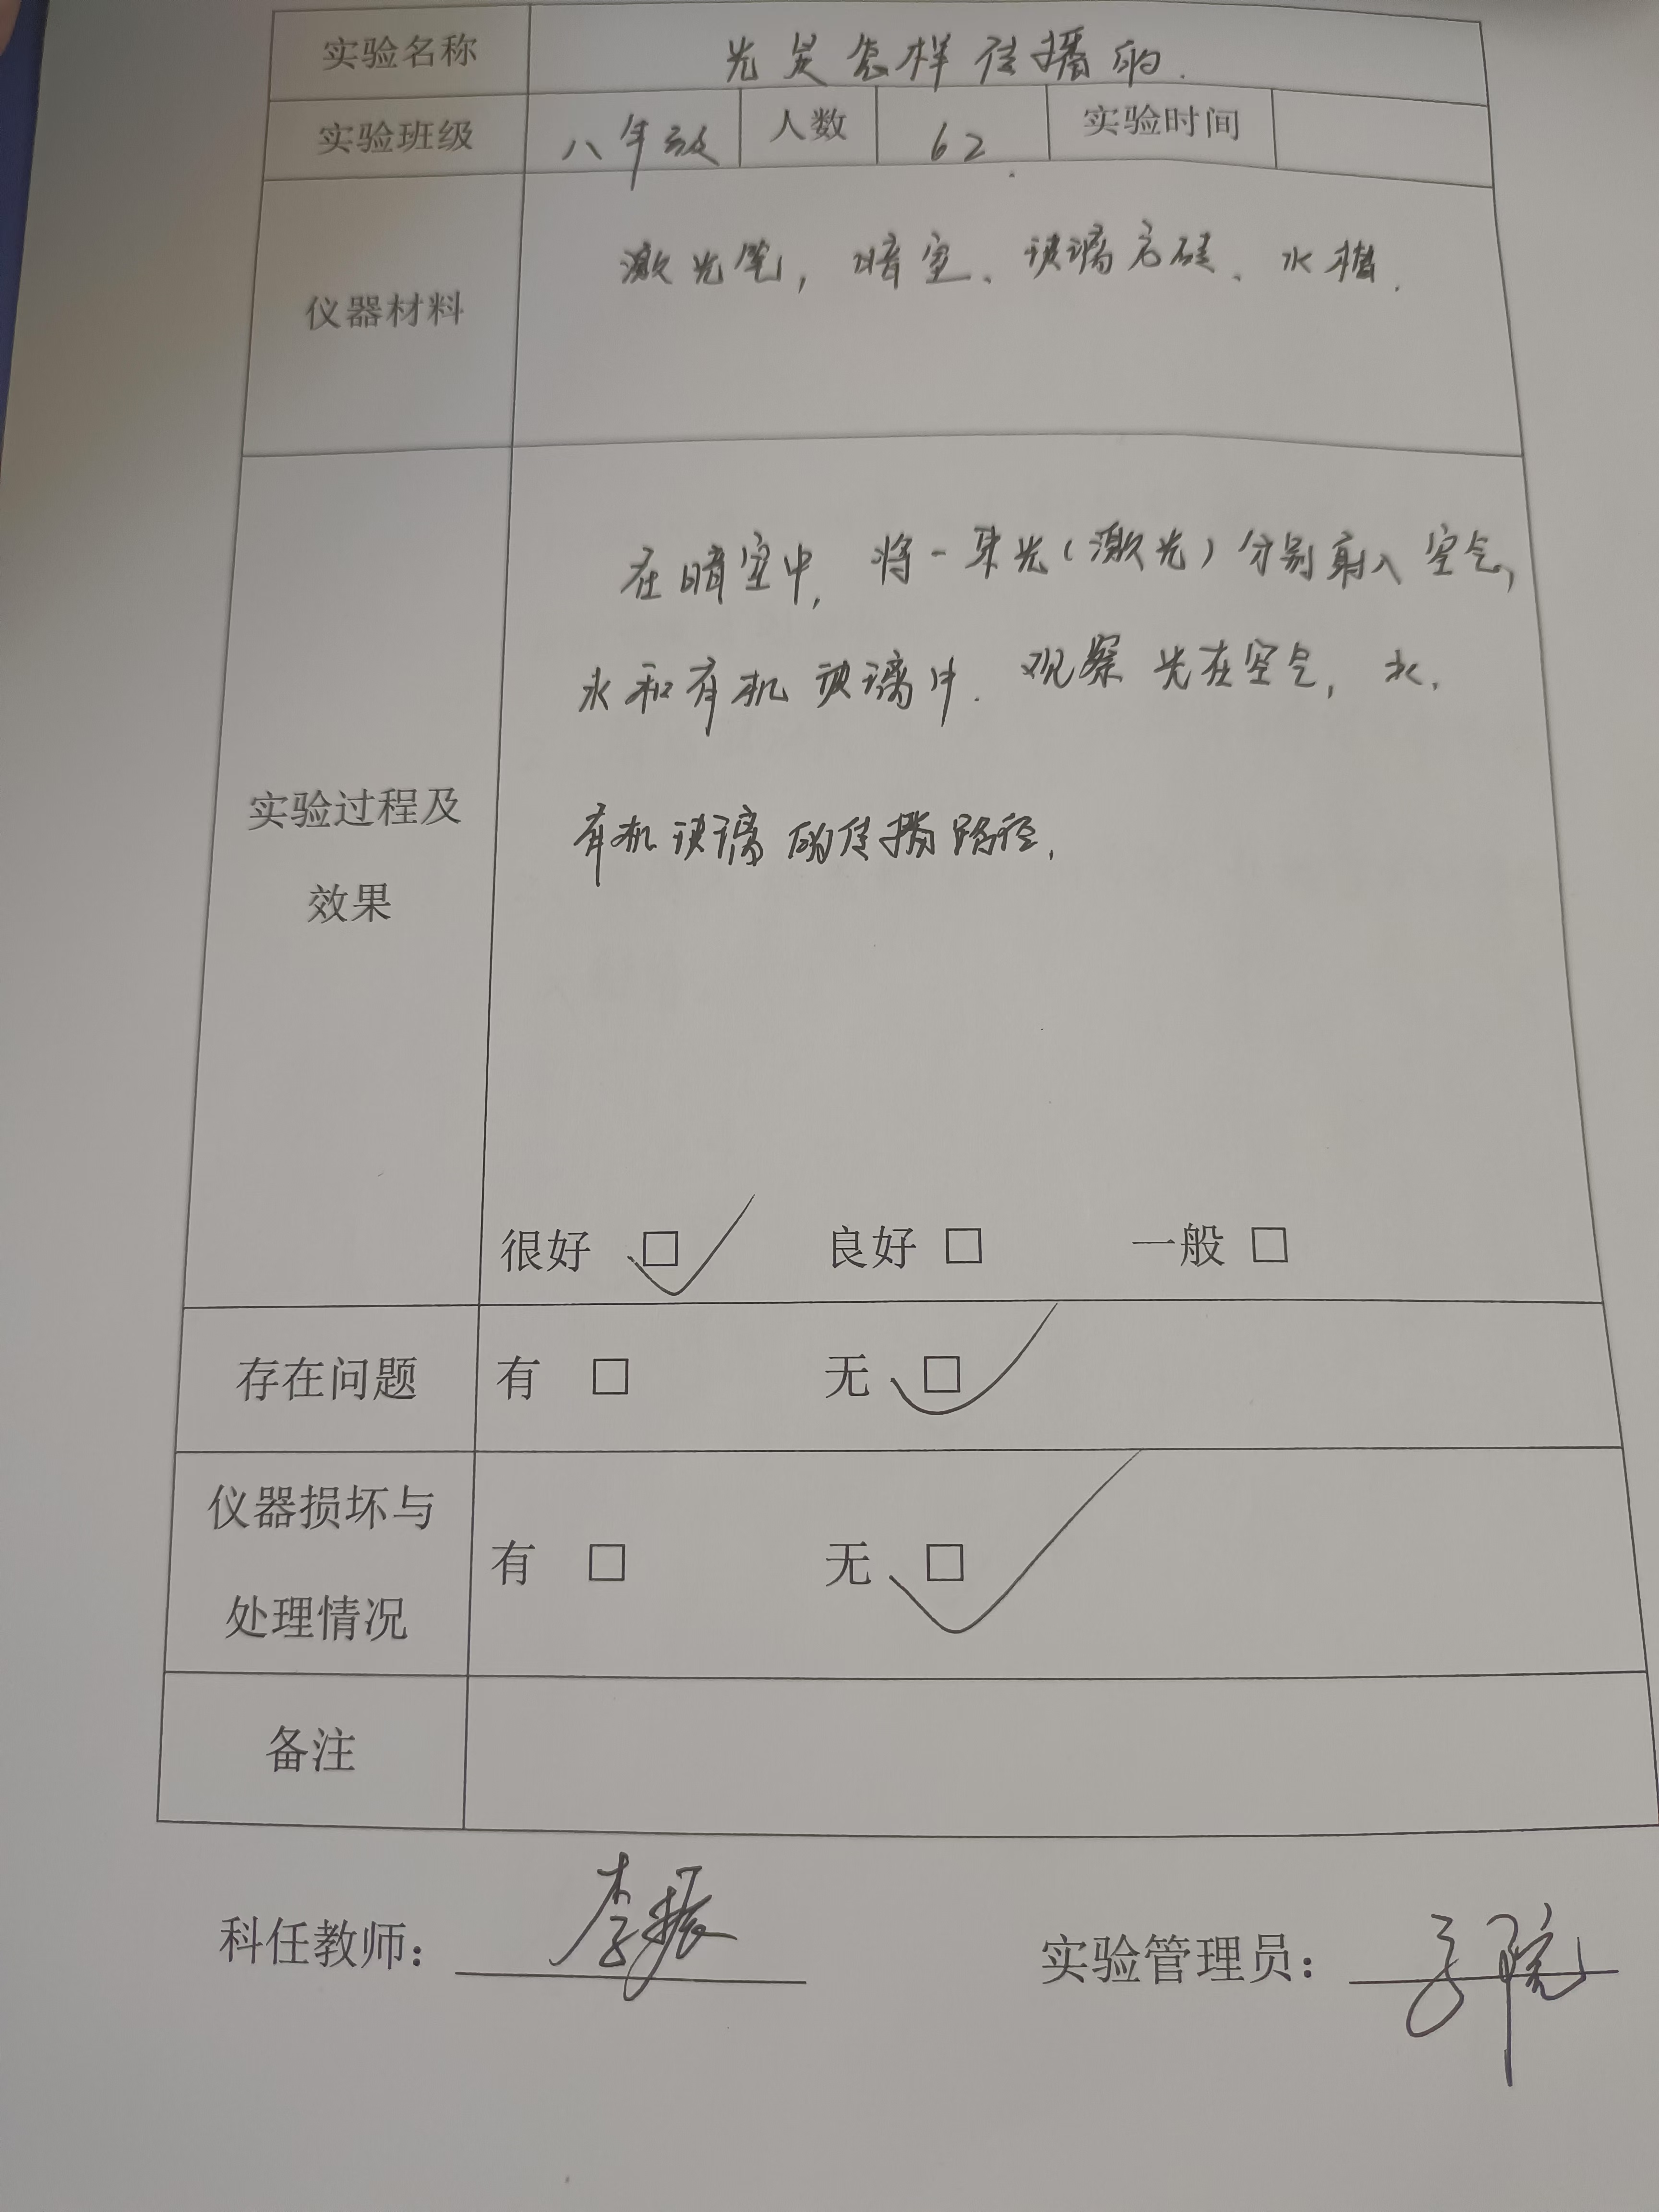 实验名称 光是怎样传播的.
实验班级 八年级 人数 62 实验时间
仪器材料 激光笔, 暗室、玻璃石硅、水槽.
在暗室中, 将一束光(激光)分别射入空气,
水和有机玻璃中. 观察光在空气, 水.
实验过程及
有机玻璃的传播路径.
效果
很好 ☑ 良好 □ 一般 □
存在问题 有 □ 无 ☑
仪器损坏与
有 □ 无 ☑
处理情况
备注
科任教师: 李振 实验管理员: